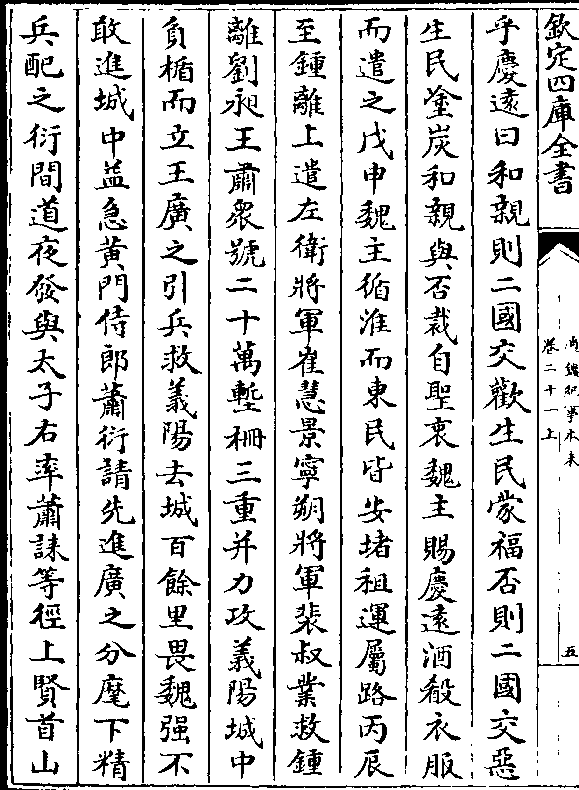 欽定四庫全書
通鑑紀事本末
卷二十一上
五
乎慶逺曰和親則二國交歡生民蒙福否則二國交惡
生民塗炭和親與否裁自聖衷魏主賜慶逺酒殽衣服
而遣之戊申魏主循淮而東民皆安堵租運屬路丙辰
至鍾離上遣左衛將軍崔慧景寧朔將軍裴叔業救鍾
離劉昶王肅衆號二十萬塹柵三重并力攻義陽城中
負楯而立王廣之引兵救義陽去城百餘里畏魏强不
敢進城中益急黄門侍郎蕭衍請先進廣之分麾下精
兵配之衍間道夜發與太子右率蕭誄等徑上賢首山